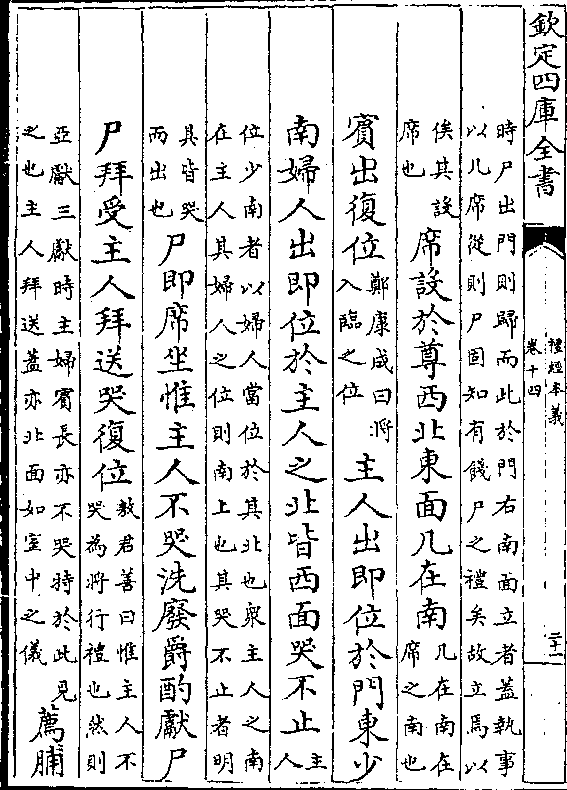 欽定四庫全書
禮經本義
卷十四
二十一
時尸出門則歸而此於門右南面立者蓋執事
以几席從則尸固知有餞尸之禮矣故立焉以
俟其設
席也
席設於尊西北東面几在南
几在南在
席之南也
賓出復位
鄭康成曰將
入臨之位
主人出即位於門東少
南婦人出即位於主人之北皆西面哭不止
主
人
位少南者以婦人當位於其北也衆主人之南
在主人其婦人之位則南上也其哭不止者明
其皆哭
而出也
尸即席坐惟主人不哭洗廢爵酌獻尸
尸拜受主人拜送哭復位
敖君善曰惟主人不
哭為將行禮也然則
亞獻三獻時主婦賓長亦不哭特於此見
之也主人拜送蓋亦北面如室中之儀
薦脯